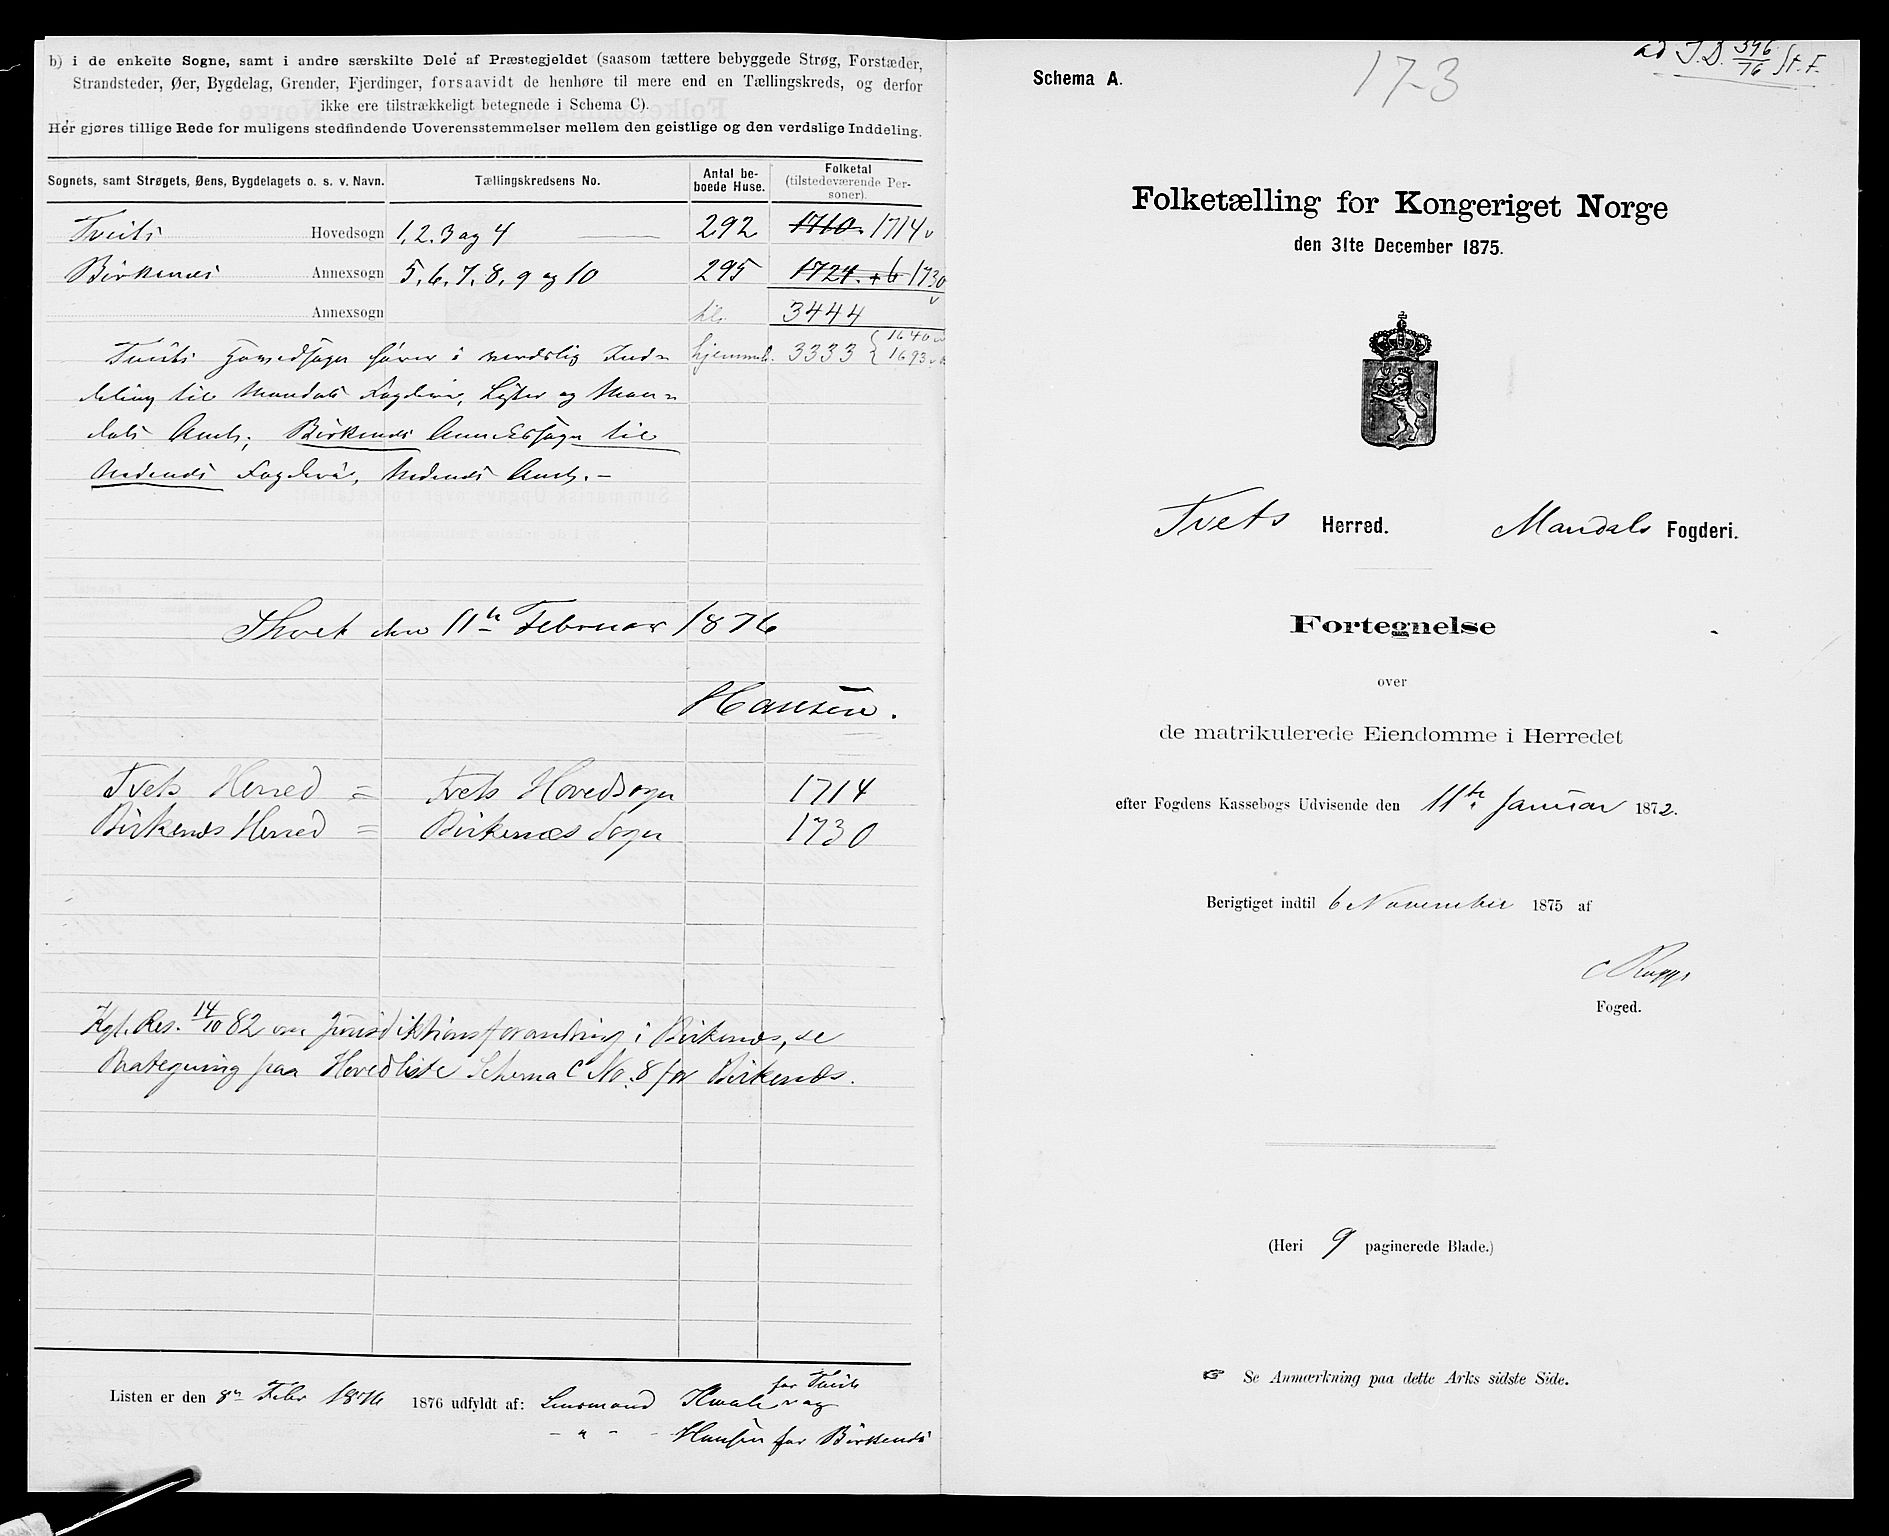 b) i de enkelte Sogne, samt i andre særskilte Dele af Præstegjeldet (saasom tættere bebyggede Strøg, Forstæder,
Strandsteder, Øer, Bygdelag, Grender, Fjerdinger, forsaavidt de henhøre til mere end en Tællingskreds, og derfor
ikke ere tilstrækkeligt betegnede i Schema C).
Her gjøres tillige Rede for muligens stedfindende Uoverensstemmelser mellem den geistlige og den verdslige Inddeling.
Sognets, samt Strøgets, Øens, Bygdelagets o. s. v. Navn. Tællingskredsens No. Antal be-boede Huse. Folketal (tilstedeværende Per-soner).
Tveits Hovedsogn 1, 2, 3 og 4 292 1710 1714
Birkenæs Annexsogn 5, 6, 7, 8, 9 og 10 295 1724 + 6 1730
Annexsogn til. 3444
Tveits Hovedsogn hører i verdslig Ind- hjemmeh. 3333 { 1640 1693
deling til Mandals Fogderi, Lister og Man-
dals Amt; Birkenæs Annexsogn til
Nedenæs Fogderi, Nedenæs Amt. –
Thvet den 11te Februar 1876
Hansen.
Tvets Herred = Tvets Hovedsogn 1714
Birkenæs Herred = Birkenæs Sogn 1730
Kgl. Res. 14/10 82 om Jurisdiktionsforandring i Birkenæs, se
Paategning paa Hovedliste Schema C No. 8 for Birkenæs.
Listen er den 8de Febr 1876 1876 udfyldt af: Lensmand for Tveit
og
– " – Hansen for Birkenæs
ad I.D. 396/76 St. F.
Schema A.
17-3
Folketælling for Kongeriget Norge
den 31te December 1875.
Tvets Herred. Mandals Fogderi.
Fortegnelse
over
de matrikulerede Eiendomme i Herredet
efter Fogdens Kassebogs Udvisende den 11te Januar 1872.
Berigtiget indtil 6 November 1875 af
Foged.
(Heri 9 paginerede Blade.)
☞ Se Anmærkning paa dette Arks sidste Side.